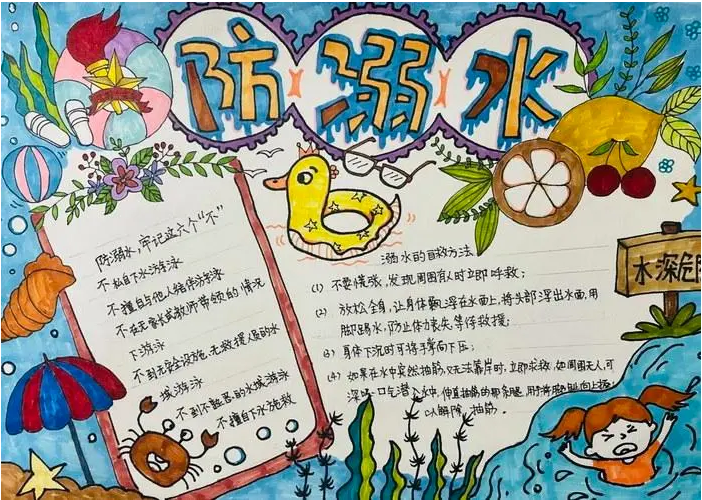 防溺水
防溺水,牢记这六个“不”
不私自下水游泳
不擅自与他人结伴游泳
不在无家长或教师带领的情况
下游泳
不到无安全设施、无救援人员的水
域游泳
不到不熟悉的水域游泳
不擅自下水施救
溺水的自救方法
(1) 不要慌张,发现周围有人时立即呼救;
(2) 放松全身,让身体飘浮在水面上,将头部浮出水面,用
脚踢水,防止体力丧失,等待救援;
(3) 身体下沉时可将手掌向下压;
(4) 如果在水中突然抽筋,又无法靠岸时,立即求救,如周围无人,可
深吸一口气潜入水中,伸直抽筋的那条腿,用手将脚趾向上扳,
以解除抽筋。
水深危